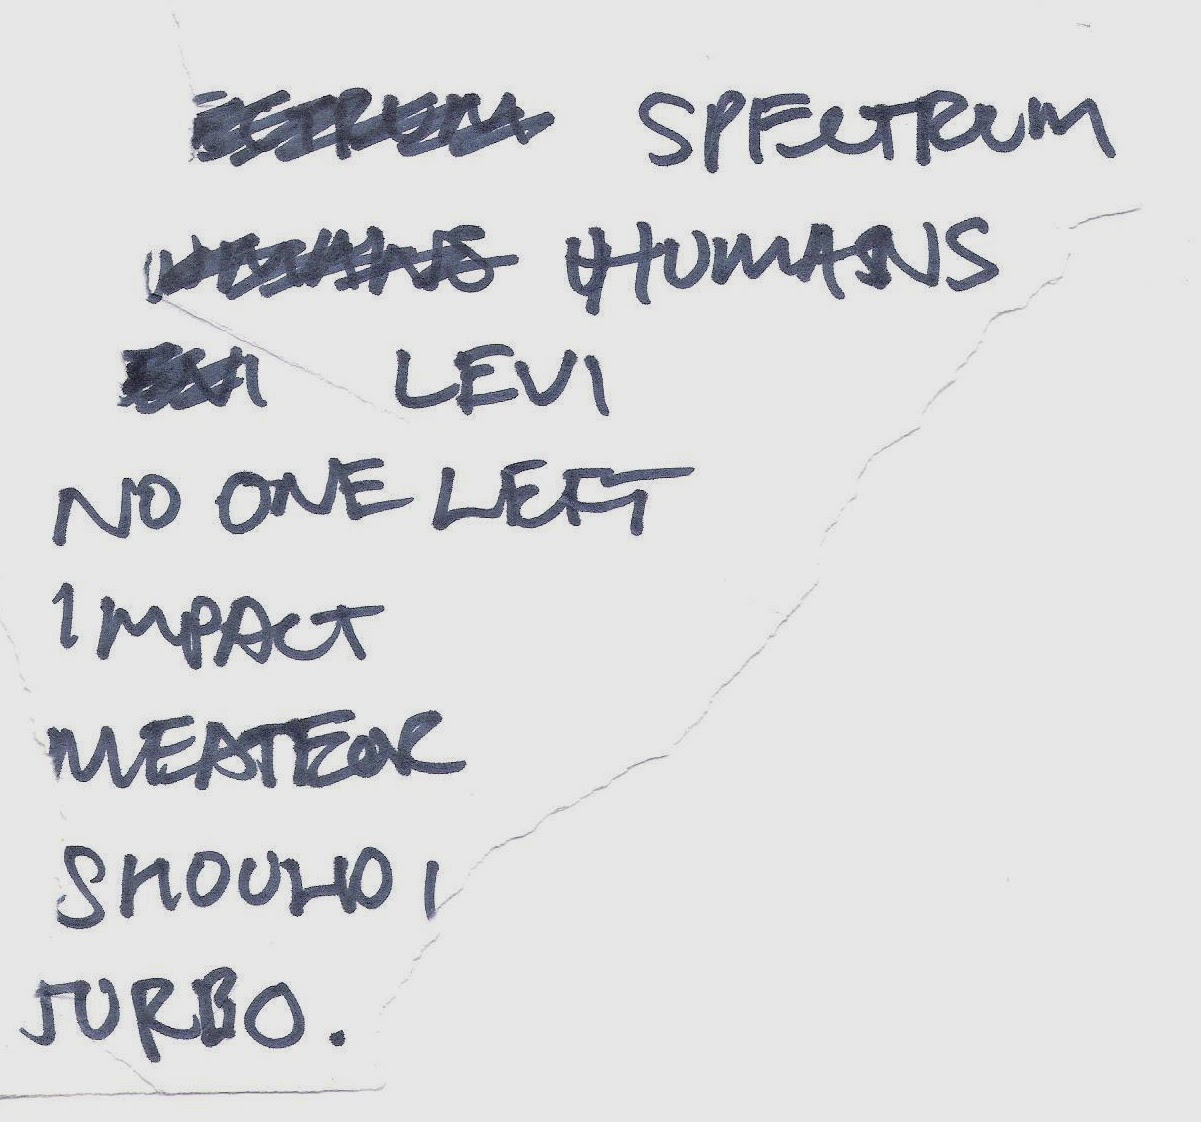 SPECTRUM
HUMANS
LEVI
NO ONE LEFT
IMPACT
MEATEOR
SHOULD I
TURBO.